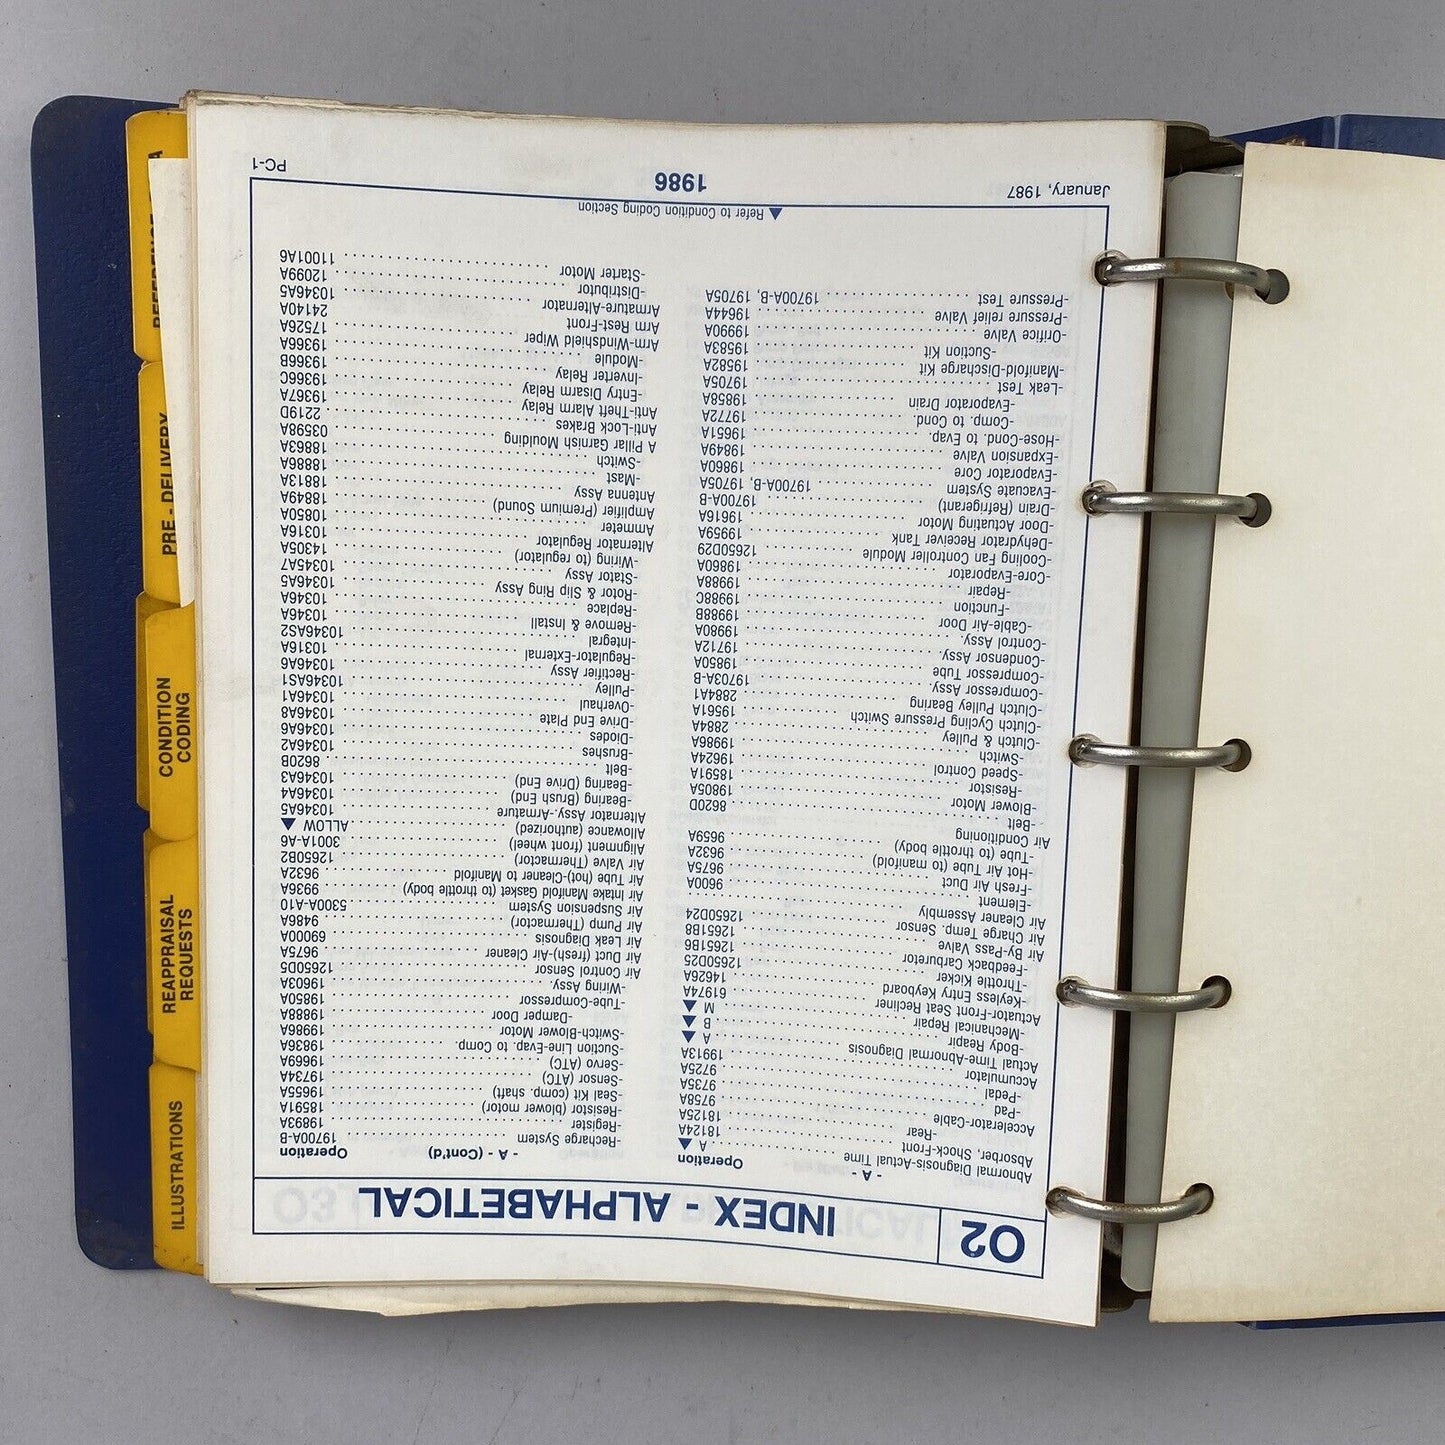 O2 INDEX - ALPHABETICAL
- A - Operation
Abnormal Diagnosis-Actual Time A ▲
Absorber, Shock-Front 18124A
-Rear 18125A
Accelerator-Cable 9758A
-Pad 9735A
-Pedal 9725A
Accumulator 19913A
Actual Time-Abnormal Diagnosis A ▲
-Body Reapir B ▲
-Mechanical Repair M ▲
Actuator-Front Seat Recliner 61974A
-Keyless Entry Keyboard 14626A
-Throttle Kicker 12650D25
-Feedback Carburetor 12651B6
Air By-Pass Valve 12651B8
Air Charge Temp. Sensor 12650D24
Air Cleaner Assembly
-Element 9600A
-Fresh Air Duct 9675A
-Hot Air Tube (to manifold) 9632A
-Tube (to throttle body) 9659A
Air Conditioning
-Belt 8620D
-Blower Motor 19805A
-Resistor 18591A
-Speed Control 19624A
-Switch 19986A
-Clutch & Pulley 2884A
-Clutch Cycling Pressure Switch 19561A
-Clutch Pulley Bearing 2884A1
-Compressor Assy. 19703A-B
-Compressor Tube 19850A
-Condensor Assy. 19712A
-Control Assy. 19980A
-Cable-Air Door 19988B
-Function 19988C
-Repair 19988A
-Core-Evaporator 19860A
-Cooling Fan Controller Module 12650D29
-Dehydrator Receiver Tank 19959A
-Door Actuating Motor 19616A
-Drain (Refrigerant) 19700A-B
-Evacuate System 19700A-B, 19705A
-Evaporator Core 19860A
-Expansion Valve 19849A
-Hose-Cond. to Evap. 19651A
-Comp. to Cond. 19772A
-Evaporator Drain 19858A
-Leak Test 19705A
-Manifold-Discharge Kit 19582A
-Suction Kit 19583A
-Orifice Valve 19990A
-Pressure relief Valve 19644A
-Pressure Test 19700A-B, 19705A
- A - (Cont'd) Operation
-Recharge System 19700A-B
-Register 19893A
-Resistor (blower motor) 18591A
-Seal Kit (comp. shaft) 19655A
-Sensor (ATC) 19734A
-Servo (ATC) 19669A
-Suction Line-Evap. to Comp. 19836A
-Switch-Blower Motor 19986A
-Damper Door 19888A
-Tube-Compressor 19850A
-Wiring Assy. 19603A
Air Control Sensor 12650D5
Air Duct (fresh)-Air Cleaner 9675A
Air Leak Diagnosis 69000A
Air Pump (Thermactor) 9486A
Air Suspension System 5300A-A10
Air Intake Manifold Gasket (to throttle body) 9936A
Air Tube (hot)-Cleaner to Manifold 9632A
Air Valve (Thermactor) 12650B2
Alignment (front wheel) 3001A-A6
Allowance (authorized) ALLOW ▲
Alternator Assy.-Armature 10346A5
-Bearing (Brush End) 10346A4
-Bearing (Drive End) 10346A3
-Belt 8620B
-Brushes 10346A2
-Diodes 10346A6
-Drive End Plate 10346A8
-Overhaul 10346A1
-Pulley 10346AS1
-Rectifier Assy 10346A6
-Regulator-External 10316A
-Integral 10346AS2
-Remove & Install 10346A
-Replace 10346A
-Rotor & Slip Ring Assy 10346A5
-Stator Assy 10345A7
-Wiring (to regulator) 14305A
Alternator Regulator 10316A
Ammeter 10850A
Amplifier (Premium Sound) 18849A
Antenna Assy 18813A
-Mast 18886A
-Switch 18863A
A Pillar Garnish Moulding 03598A
Anti-Lock Brakes 2219D
Anti-Theft Alarm Relay 19367A
-Entry Disarm Relay 19366C
-Inverter Relay 19366B
-Module 19366A
Arm-Windshield Wiper 17526A
Arm Rest-Front 24140A
Armature-Alternator 10346A5
-Distributor 12099A
-Starter Motor 11001A6
▲ Refer to Condition Coding Section
January, 1987 1986 PC-1
PRE - DELIVERY
CONDITION
CODING
REAPPRAISAL
REQUESTS
ILLUSTRATIONS